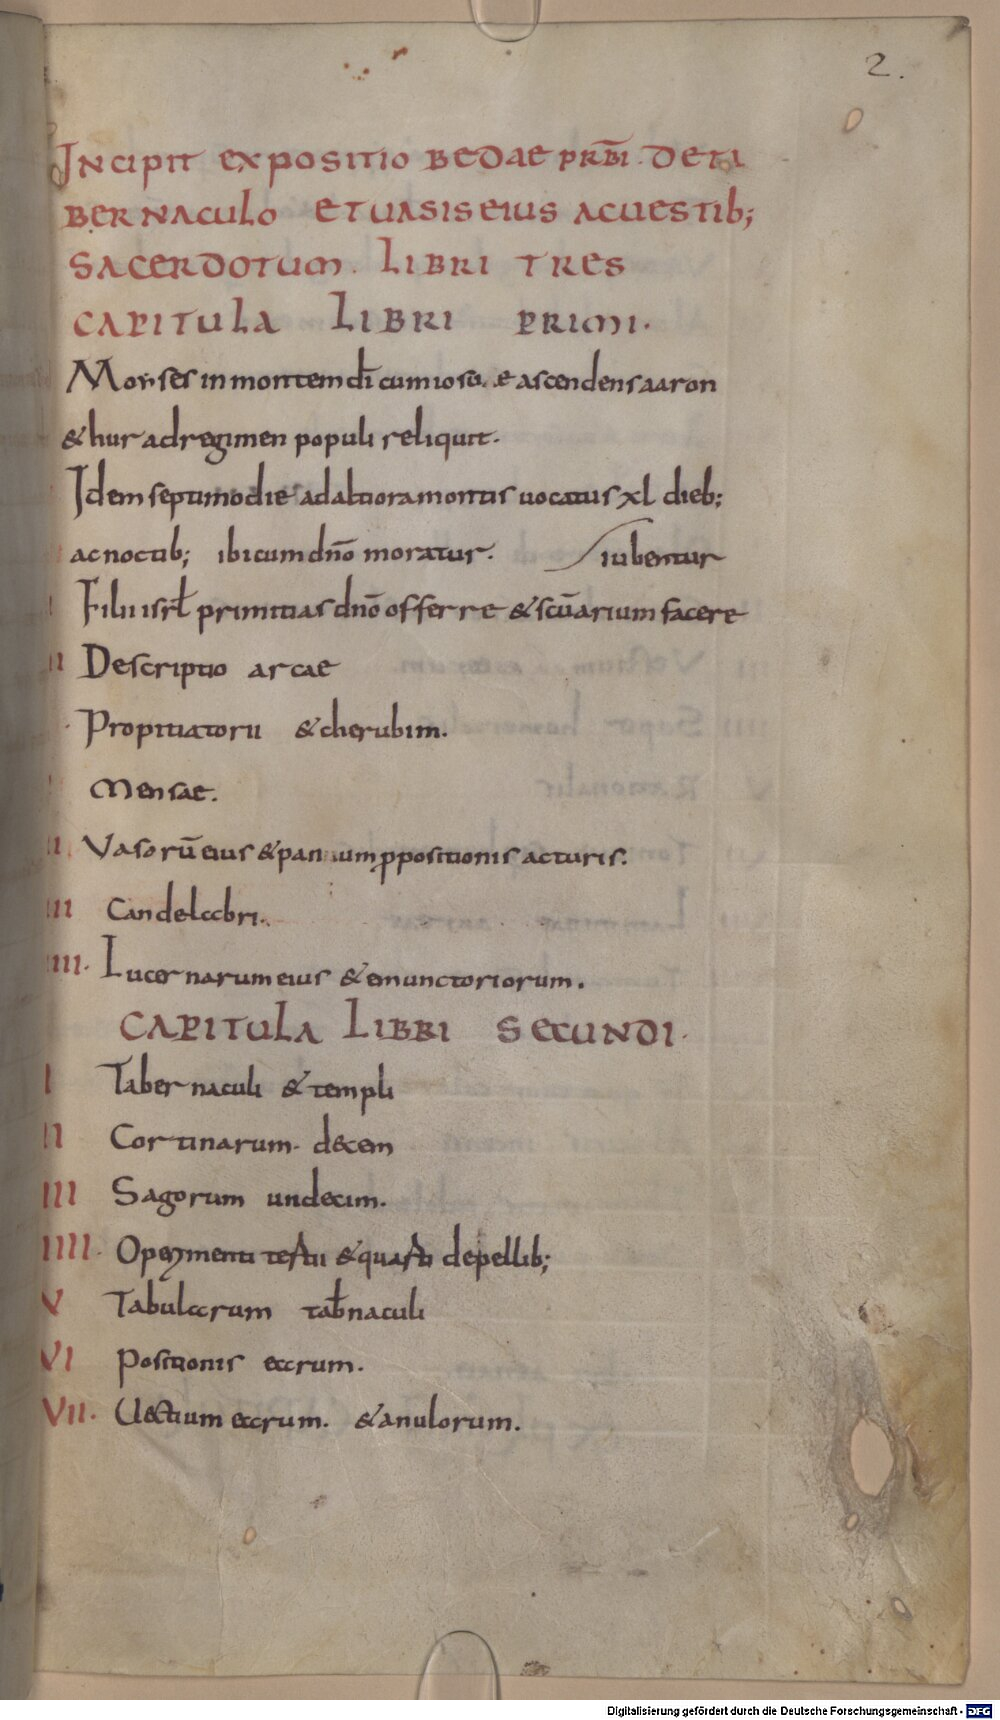 2.
INCIPIT EXPOSITIO BEDAE PRBI. DE TA
BERNACULO ET UASIS EIUS AC UESTIB;
SACERDOTUM. LIBRI TRES
CAPITULA LIBRI PRIMI.
Moyses in montem dī cum iosue ascendens aaron
& hur ad regimen populi reliquit.
Idem septimo die ad altiora montis uocatus xl dieb;
ac noctib; ibi cum dn̄o moratur. iubentur
Filii isrl primitias dn̄o offerre & scūarium facere
II Descriptio arcae
Propitiatorii & cherubim.
Mensae.
II. Vasorū eius & panium ꝓpositionis acturis.
III Candelabri.
IIII. Lucernarum eius & emunctoriorum.
CAPITULA LIBRI SECUNDI.
I Tabernaculi & templi
II Cortinarum. decem
III Sagorum undecim.
IIII. Operimenti tectii & quarti de pellib;
V Tabularum tab̄naculi
VI Positionis earum.
VII. Uectium earum. & anulorum.
Digitalisierung gefördert durch die Deutsche Forschungsgemeinschaft - DFG